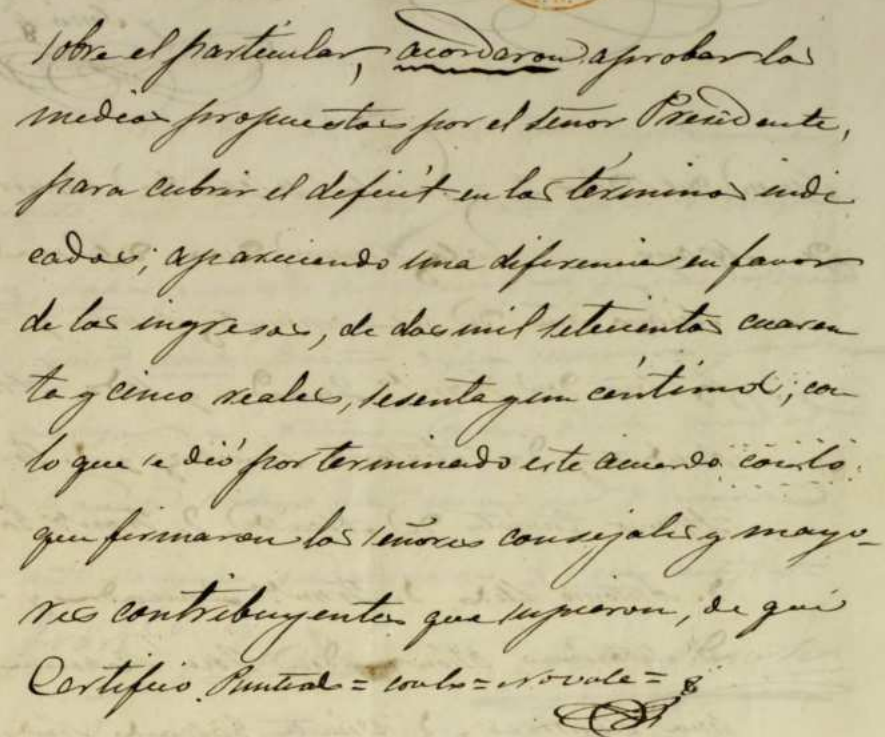 sobre el particular, acordaron aprobar los
medios propuestos por el señor Presidente,
para cubrir el deficit en los términos indi
cados; apareciendo una diferencia en favor
de los ingresos, de dos mil setecientos cuaren
ta y cinco reales, sesenta y un céntimos; con
lo que se dió por terminado este acuerdo conlo
que firmaron los señores consejales y mayo-
res contribuyentes que supieron, de que
Certifico. Punteado = conlo = no vale =